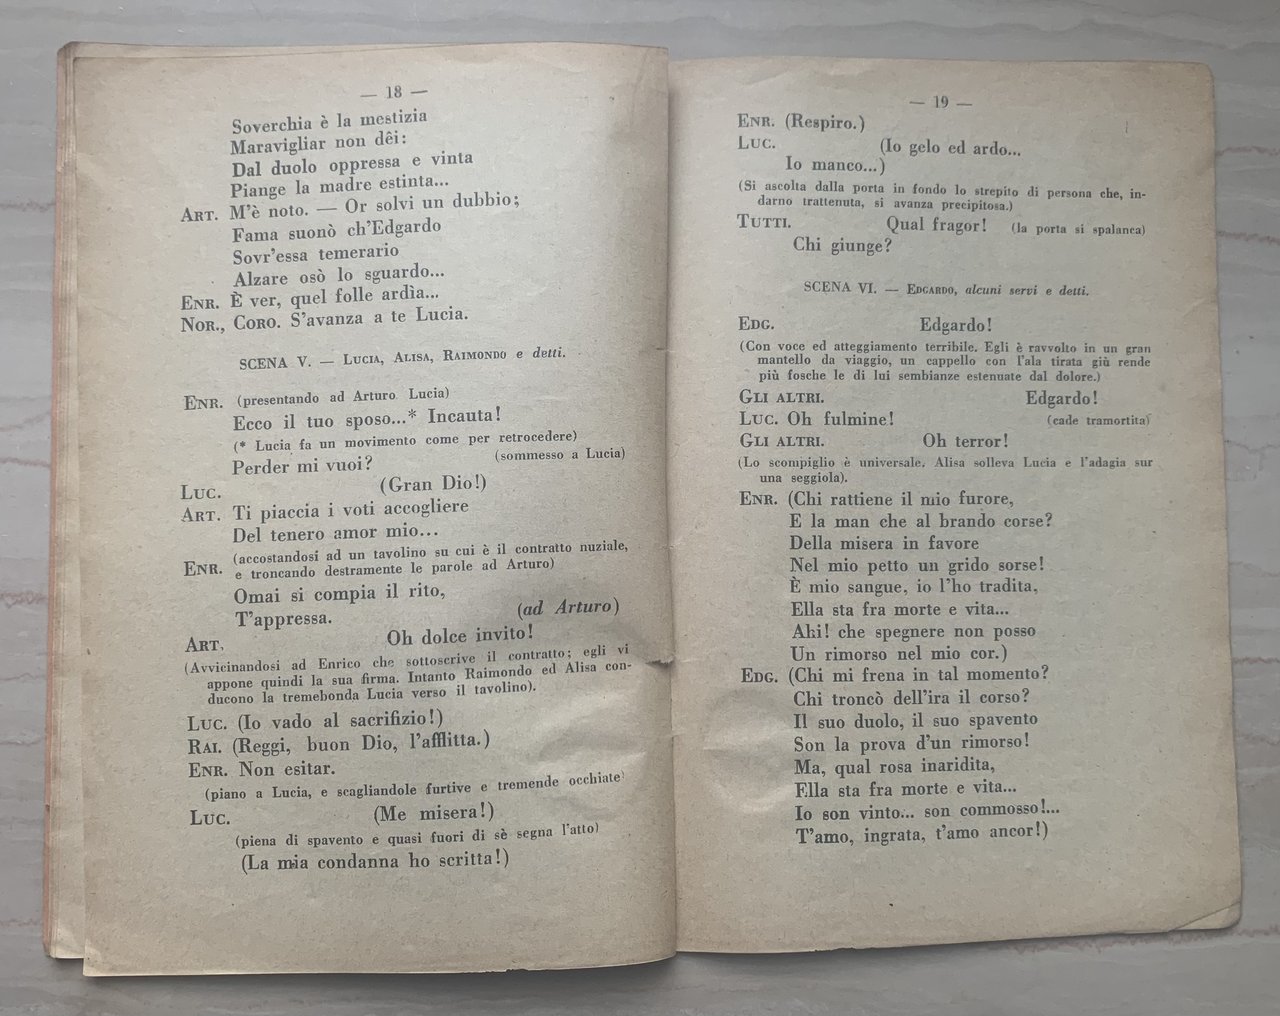 — 18 —
Soverchia è la mestizia
Maravigliar non dêi:
Dal duolo oppressa e vinta
Piange la madre estinta...
ART. M'è noto. — Or solvi un dubbio;
Fama suonò ch'Edgardo
Sovr'essa temerario
Alzare osò lo sguardo...
ENR. È ver, quel folle ardìa...
NOR., CORO. S'avanza a te Lucia.
SCENA V. — LUCIA, ALISA, RAIMONDO e detti.
ENR. (presentando ad Arturo Lucia)
Ecco il tuo sposo...* Incauta!
(* Lucia fa un movimento come per retrocedere)
Perder mi vuoi? (sommesso a Lucia)
LUC. (Gran Dio!)
ART. Ti piaccia i voti accogliere
Del tenero amor mio...
ENR. (accostandosi ad un tavolino su cui è il contratto nuziale,
e troncando destramente le parole ad Arturo)
Omai si compia il rito,
T'appressa. (ad Arturo)
ART. Oh dolce invito!
(Avvicinandosi ad Enrico che sottoscrive il contratto; egli vi
appone quindi la sua firma. Intanto Raimondo ed Alisa con-
ducono la tremebonda Lucia verso il tavolino).
LUC. (Io vado al sacrifizio!)
RAI. (Reggi, buon Dio, l'afflitta.)
ENR. Non esitar.
(piano a Lucia, e scagliandole furtive e tremende occhiate)
LUC. (Me misera!)
(piena di spavento e quasi fuori di sè segna l'atto)
(La mia condanna ho scritta!)
— 19 —
ENR. (Respiro.)
LUC. (Io gelo ed ardo...
Io manco...)
(Si ascolta dalla porta in fondo lo strepito di persona che, in-
darno trattenuta, si avanza precipitosa.)
TUTTI. Qual fragor! (la porta si spalanca)
Chi giunge?
SCENA VI. — EDGARDO, alcuni servi e detti.
EDG. Edgardo!
(Con voce ed atteggiamento terribile. Egli è ravvolto in un gran
mantello da viaggio, un cappello con l'ala tirata giù rende
più fosche le di lui sembianze estenuate dal dolore.)
GLI ALTRI. Edgardo!
LUC. Oh fulmine! (cade tramortita)
GLI ALTRI. Oh terror!
(Lo scompiglio è universale. Alisa solleva Lucia e l'adagia sur
una seggiola).
ENR. (Chi rattiene il mio furore,
E la man che al brando corse?
Della misera in favore
Nel mio petto un grido sorse!
È mio sangue, io l'ho tradita,
Ella sta fra morte e vita...
Ahi! che spegnere non posso
Un rimorso nel mio cor.)
EDG. (Chi mi frena in tal momento?
Chi troncò dell'ira il corso?
Il suo duolo, il suo spavento
Son la prova d'un rimorso!
Ma, qual rosa inaridita,
Ella sta fra morte e vita...
Io son vinto... son commosso!...
T'amo, ingrata, t'amo ancor!)